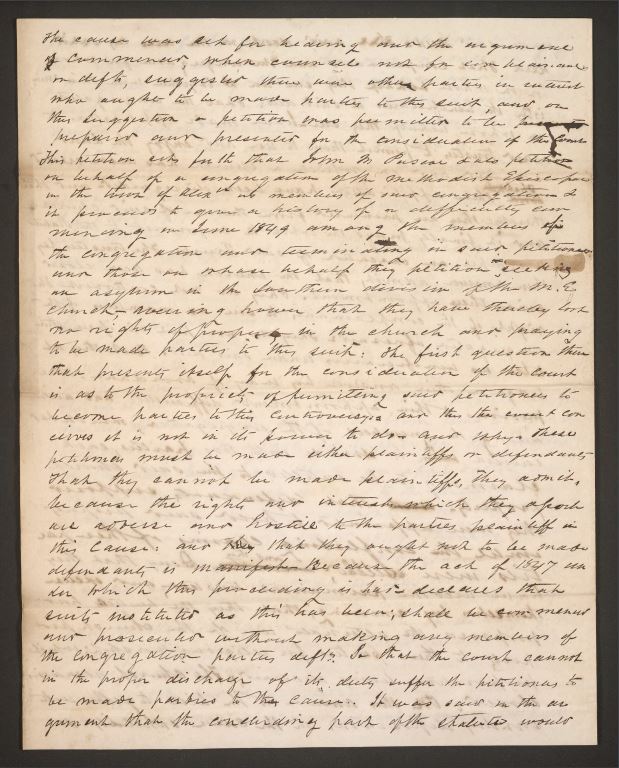 The cause was set for hearing and the argument
commenced, when counsel not for complainant
or defts, suggested there were other parties in interest
who ought to be made parties to this suit, and on
this suggestion a petition was permitted to be
prepared and presented for the consideration of the Court
This petition sets forth that John M
on behalf of a congregation of the Methodist Episcopal
in the town of Alexa as members of said congregation &
it proceeds to give a history of a difficulty com
mencing in June 1849 among the members of
the congregation and terminating in said petitioners
and those on whose behalf they petition seeking
an asylum in the Southern division of the M. E
church - averring however that they have thereby lost
no rights of property in the church and praying
to be made parties to this suit: The first question then
that presents itself for the consideration of the court
is as to the propriety of permitting said petitioners to
become parties to this controversy: and this the court con
ceives it is not in its power to do - and why - These
petitioners must be made either plaintiffs or defendants
That they cannot be made plaintiffs, They admit,
because the rights and interest which they
are adverse and hostile to the parties plaintiff in
this cause: and that they ought not to be made
defendants is manifest - Because the act of 1847 un
der which this proceeding is had declares that
suits instituted as this has been, shall be commenced
and prosecuted without making any members of
the congregation parties defts. So that the court cannot
in the proper discharge of its duty suffer the petitioners to
be made parties to the cause. It was said in the ar
gument that the concluding part of the statute would